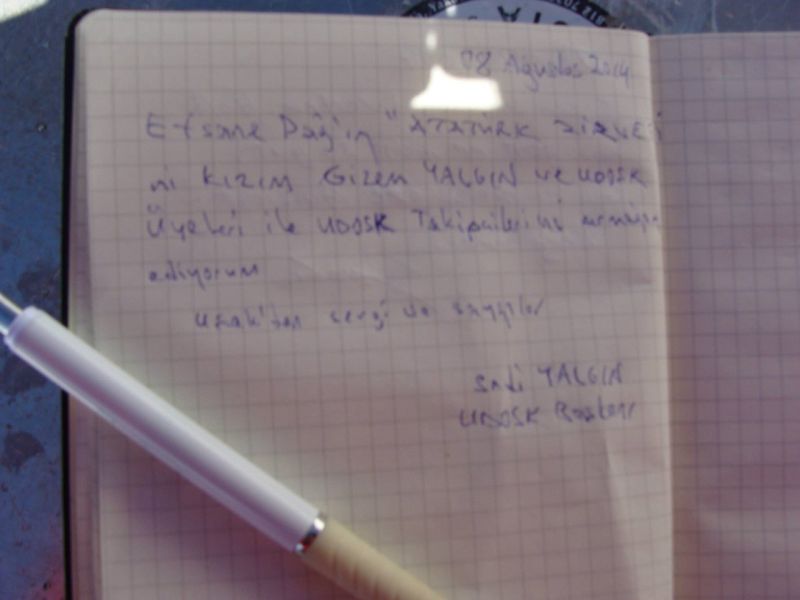 08 Ağustos 2014
Efsane Dağ'ın "ATATÜRK ZİRVESİ
ni KIZIM Gizem YALGIN ve UDOSK
Üyeleri ile UDOSK Takipcilerini armağan
ediyorum
Uşak'tan sevgi ve saygılar
Sadi YALGIN
UDOSK Başkanı